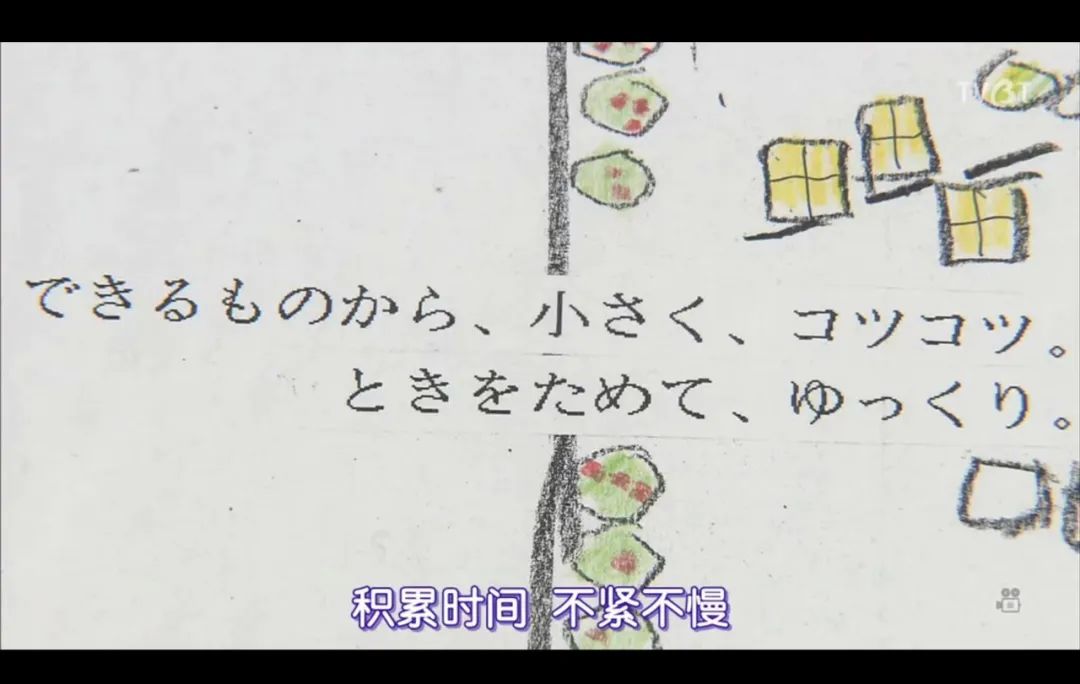 TVBT
できるものから、小さく、コツコツ。
ときをためて、ゆっくり。
积累时间 不紧不慢